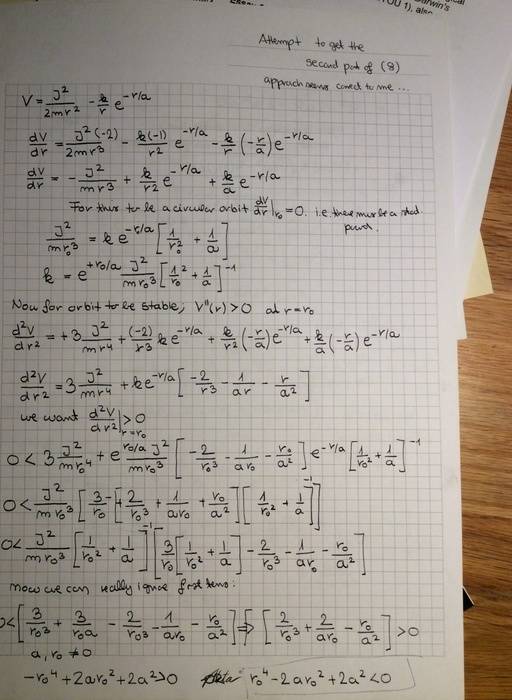 OU 1), also
Attempt to get the
second part of (8)
approach seems correct to me ...
V = J²/2mr² - k/r e^{-r/a}
dV/dr = J²(-2)/2mr³ - k(-1)/r² e^{-r/a} - k/r (-r/a) e^{-r/a}
dV/dr = - J²/mr³ + k/r² e^{-r/a} + k/a e^{-r/a}
For this to be a circular orbit dV/dr|_{r₀} = 0. i.e. there must be a
J²/mr₀³ = k e^{-r/a} [1/r₀² + 1/a]
k = e^{+r₀/a} J²/mr₀³ [1/r₀² + 1/a]^{-1}
Now for orbit to be stable, V''(r) > 0 at r = r₀
d²V/dr² = +3 J²/mr⁴ + (-2)/r³ k e^{-r/a} + k/r² (-r/a) e^{-r/a} + k/a (-r/a) e^{-r/a}
d²V/dr² = 3 J²/mr⁴ + k e^{-r/a} [-2/r³ - 1/ar - r/a²]
we want d²V/dr²|_{r=r₀} > 0
0 < 3 J²/mr₀⁴ + e^{r₀/a} J²/mr₀³ [-2/r₀³ - 1/ar₀ - r₀/a²] e^{-r/a} [1/r₀² + 1/a]^{-1}
0 < J²/mr₀³ [3/r₀ - [+2/r₀³ + 1/ar₀ + r₀/a²] [1/r₀² + 1/a]^{-1}]
0 < J²/mr₀³ [1/r₀² + 1/a]^{-1} [3/r₀ [1/r₀² + 1/a] - 2/r₀³ - 1/ar₀ - r₀/a²]
now we can really ignore first terms:
0 < [3/r₀³ + 3/r₀a - 2/r₀³ - 1/ar₀ - r₀/a²] ⇒ [2/r₀³ + 2/ar₀ - r₀/a²] > 0
a, r₀ ≠ 0
-r₀⁴ + 2ar₀² + 2a² > 0 r₀⁴ - 2ar₀² + 2a² < 0